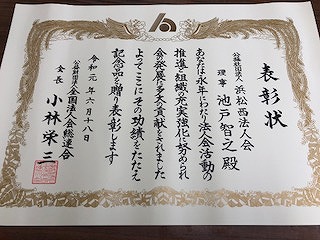 表彰状
公益社団法人 浜松西法人会
理事 池戸智之殿
あなたは永年にわたり法人会活動の
推進と組織の充実強化に努められ
会の発展に多大な貢献をされました
よってここにその功績をたたえ
記念品を贈り表彰します
令和元年六月十八日
公益財団法人 全国法人会総連合
会長 小林栄三